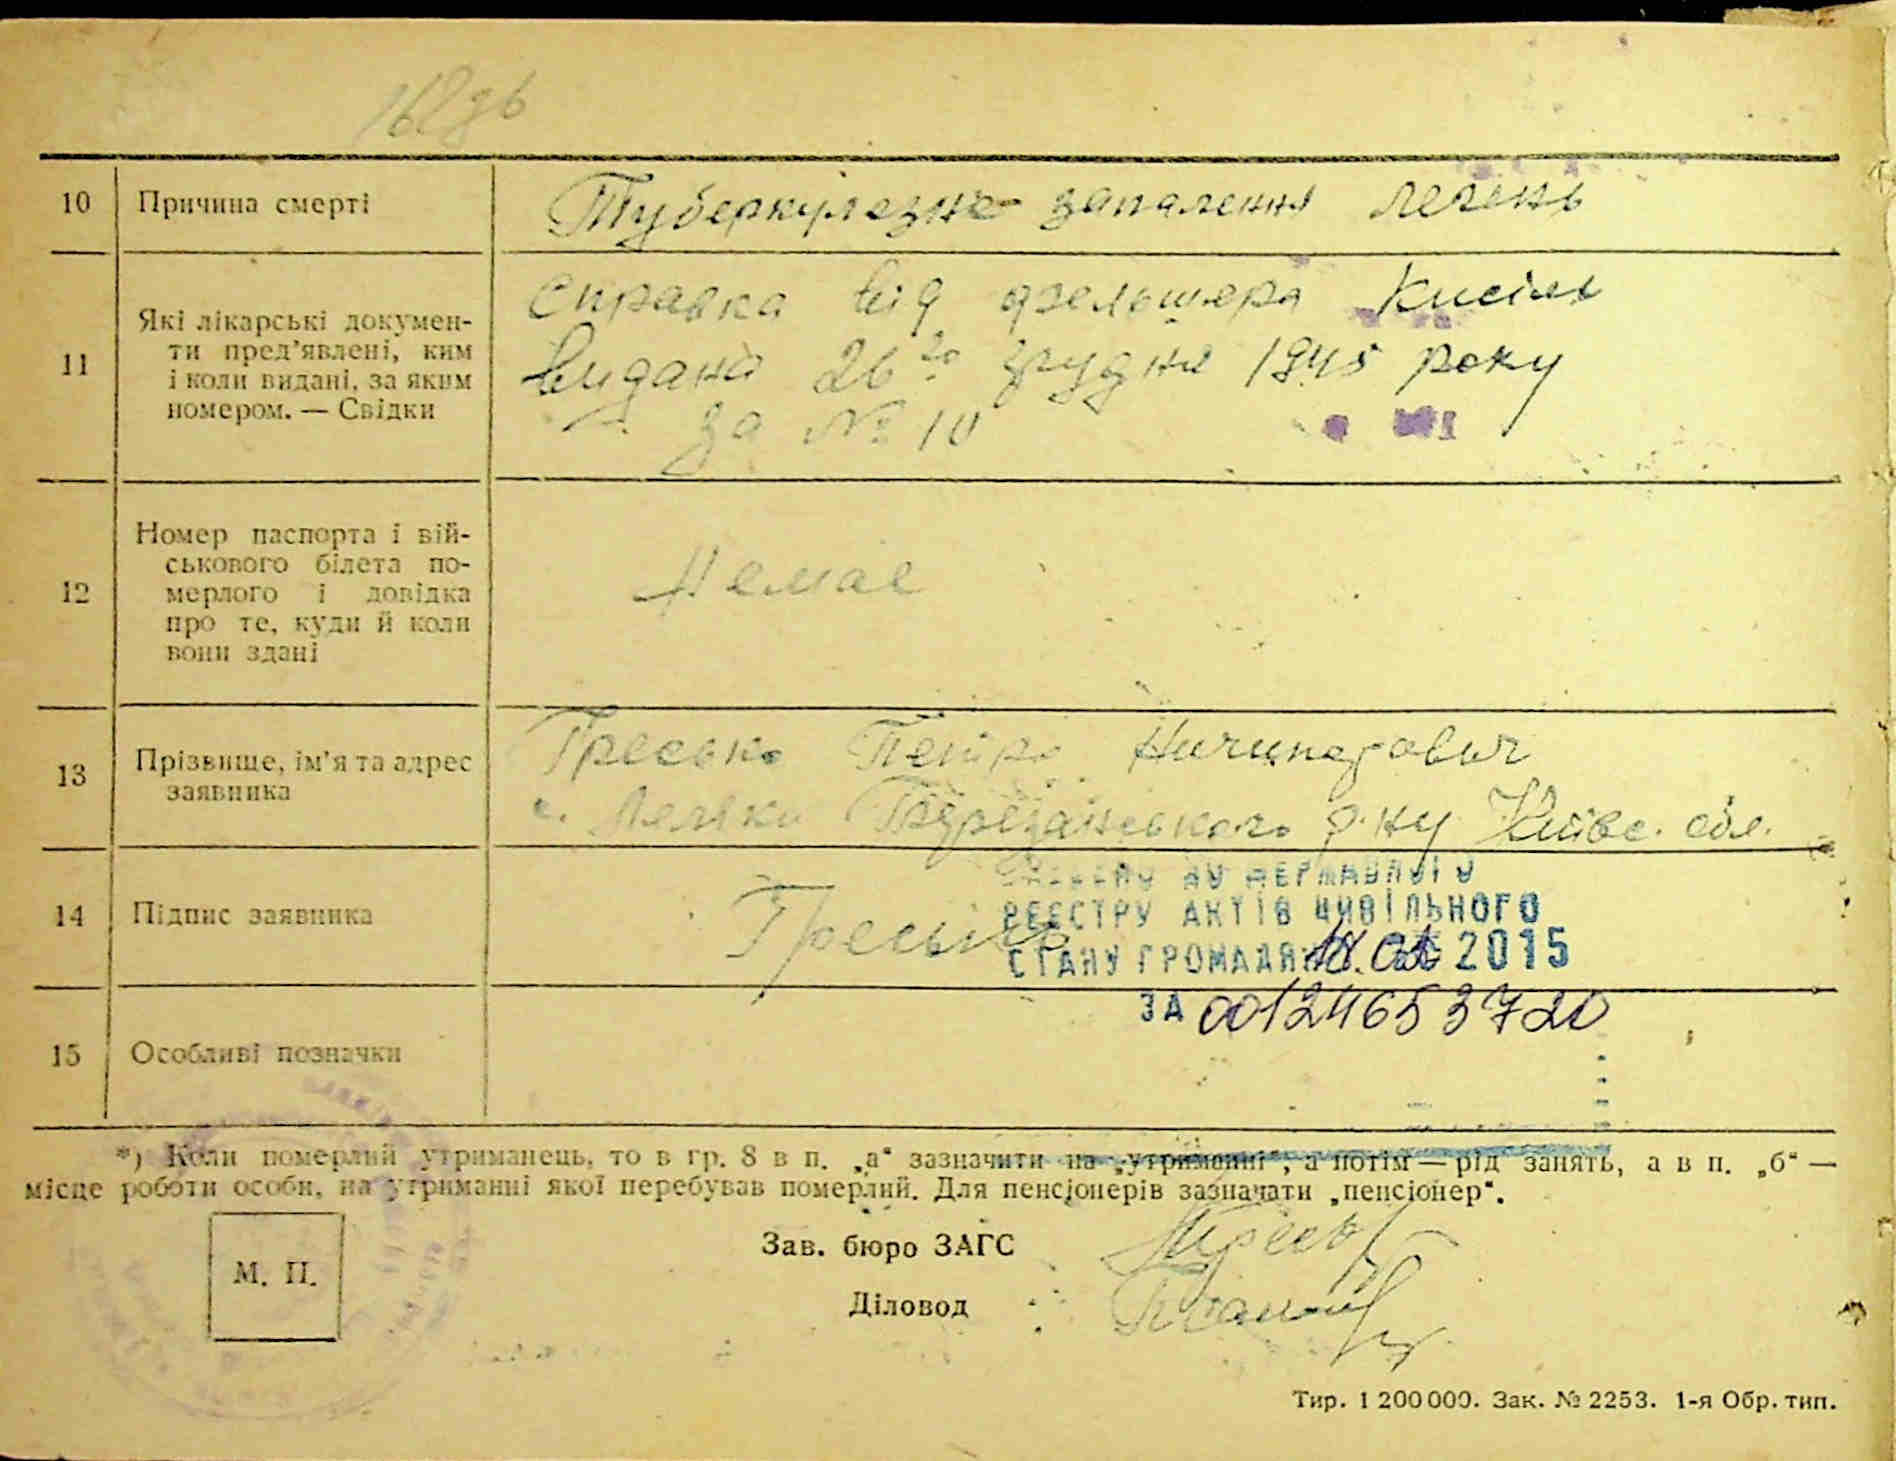 10 Причина смерті Туберкулезне запалення легень
11 Які лікарські докумен-
ти пред'явлені, ким
і коли видані, за яким
номером. — Свідки
Справка від фельшера Кисіль
Видана 26го грудня 1945 року
за № 10
12 Номер паспорта і вій-
ськового білета по-
мерлого і довідка
про те, куди й коли
вони здані
Немає
13 Прізвище, ім'я та адрес
заявника
Гресько Петро Ничипорович
с. Лемки Березанського р-ну Київс. обл.
14 Підпис заявника Гресько
ДО ДЕРЖАВНОГО
РЕЄСТРУ АКТІВ ЦИВІЛЬНОГО
СТАНУ ГРОМАДЯН 2015
ЗА 00124653720
15 Особливі позначки
*) Коли померлий утриманець, то в гр. 8 в п. „а“ зазначити на „утриманні“, а потім — рід занять, а в п. „б“ —
місце роботи особи, на утриманні якої перебував померлий. Для пенсіонерів зазначати „пенсіонер“.
М. П.
Зав. бюро ЗАГС
Діловод
Тир. 1 200 000. Зак. № 2253. 1-я Обр. тип.